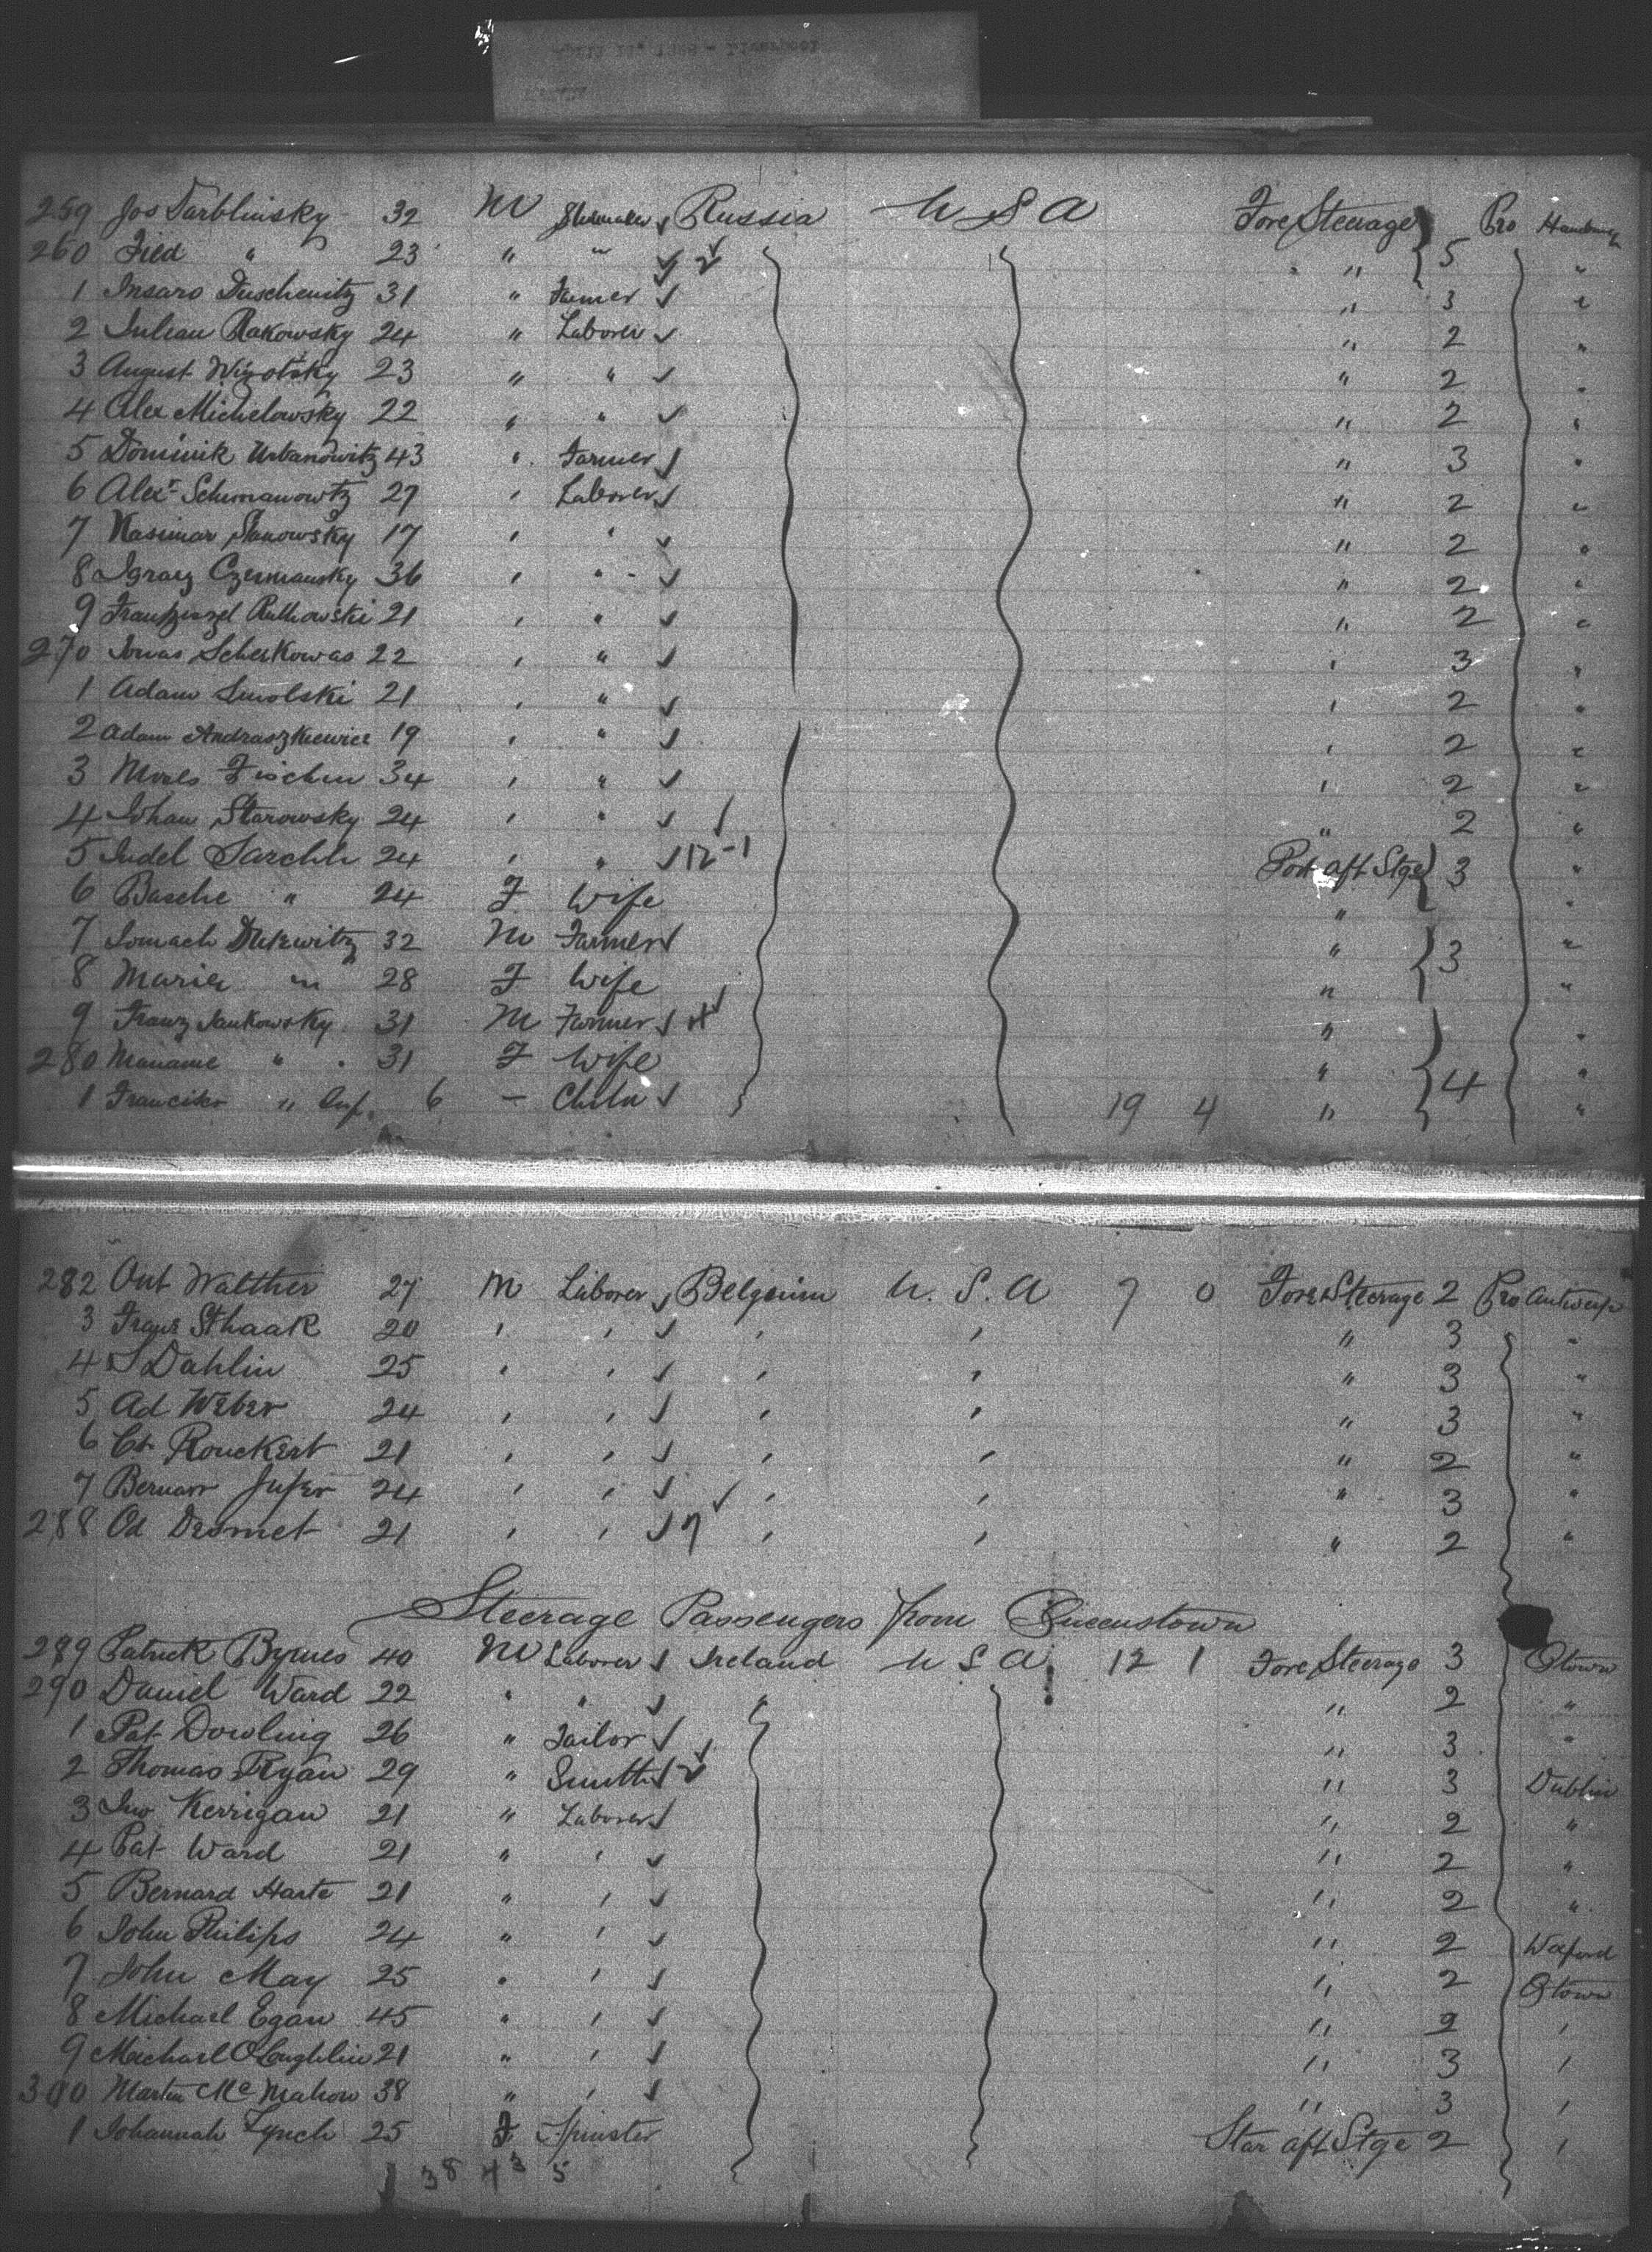 259 Jos Tarblinsky 32 M Shumaker Russia U S A Fore Steerage 5 Pro Hamburg
260 Fied " 23 " " 2 " "
1 Duschewitz 31 " Farmer " 3 "
2 Julian Rakowsky 24 " Laborer " 2 "
3 August Wizotsky 23 " " " 2 "
4 Alex Michelowsky 22 " " " 2 "
5 Dominik Urbanowitz 43 " Farmer " 3 "
6 Alexr Schimanowtz 27 " Laborer " 2 "
7 Kasimar Stanowsky 17 " " " 2 "
8 Czermansky 36 " " " 2 "
9 Ruthowski 21 " " " 2 "
270 Jonas Scherkowas 22 " " " 3 "
1 Adam Smolski 21 " " " 2 "
2 Adam Andraszkiewicz 19 " " " 2 "
3 Fischen 34 " " " 2 "
4 Johan Starowsky 24 " " " 2 "
5 Judel Sarchh 24 " " 12-1 Port aft Stge 3 "
6 Basche " 24 F Wife " "
7 32 M Farmer " 3 "
8 Marie " 28 F Wife " "
9 Franz Jankowsky 31 M Farmer 4 " "
280 Maname " 31 F Wife " 4 "
1 " Inf. 6 - Child 19 4 " "
282 Ant Walther 27 M Laborer Belgium U.S.A 7 0 Fore Steerage 2 Pro Antwerp
3 Frans Sthaak 20 " " " " " 3 "
4 S Dahlin 25 " " " " " 3 "
5 Ad Weber 24 " " " " " 3 "
6 Ch Rouckert 21 " " " " " 2 "
7 24 " " " " " 3 "
288 Od Desmet 21 " " 7 " " " 2 "
Steerage Passengers from Queenstown
289 Patrick Byrnes 40 M Laborer Ireland U S A 12 1 Fore Steerage 3 Qtown
290 Daniel Ward 22 " " " 2 "
1 Pat Dowling 26 " Tailor " 3 "
2 Thomas Ryan 29 " Smith 2 " 3 Dublin
3 Jno Kerrigan 21 " Laborer " 2 "
4 Pat Ward 21 " " " 2 "
5 Bernard Harte 21 " " " 2 "
6 John Philips 24 " " " 2 Wexford
7 John May 25 " " " 2 Qtown
8 Michael Egan 45 " " " 2 "
9 Michael O'Loughlin 21 " " " 3 "
300 Martin McMahon 38 " " " 3 "
1 Johannah Lynch 25 F Spinster Star aft Stge 2 "
38 4 3 5